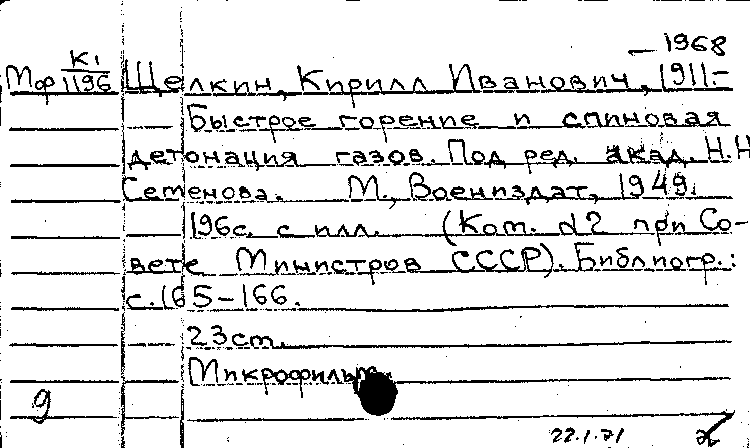 — 1968
Мф К1/1196 Щелкин, Кирилл Иванович, 1911.–
Быстрое горение и спиновая
детонация газов. Под ред. акад. Н.Н
Семенова. М., Воениздат, 1949.
196с. с илл. (Ком. №2 при Со-
вете Министров СССР). Библиогр.:
с.165–166.
23см.
Микрофильм.
9
22.1.71